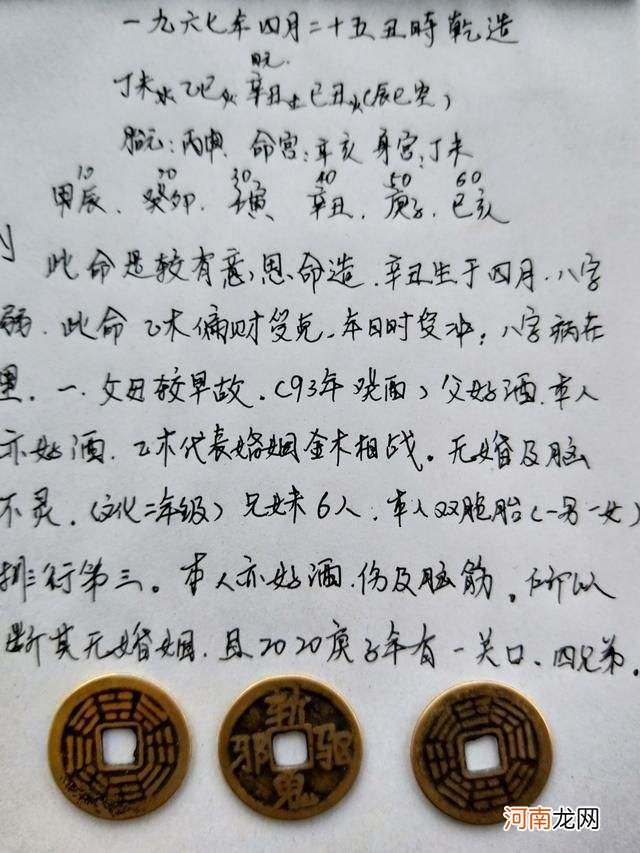 一九六七年四月二十五丑時乾造
日元
丁未水乙巳火辛丑土己丑火(辰巳空)
胎元:丙申 命宫:辛亥 身宫:丁未
10 20 30 40 50 60
甲辰、癸卯、壬寅、辛丑、庚子、己亥
此命是较有意思命造、辛丑生于四月、八字
弱、此命乙木偏财受克、年日时受冲;八字病在
里、一、父母较早故、(93年癸酉)父好酒、本人
亦好酒、乙木代表婚姻金木相战。无婚及脑
不灵、(文化二年级)兄妹6人、本人双胞胎(一男一女)
排行第三。本人亦好酒、伤及脑筋。所以
断其无婚姻、且2020庚子年有一关口、四兄弟。
斩邪驱鬼
河南龙网